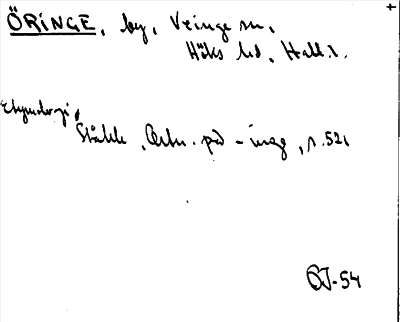 ÖRINGE, by, Veinge sn,
Höks hd, Hall. l.
Etymologi,
Ståhle, Ortn. på -inge, s. 521
ÖJ-54